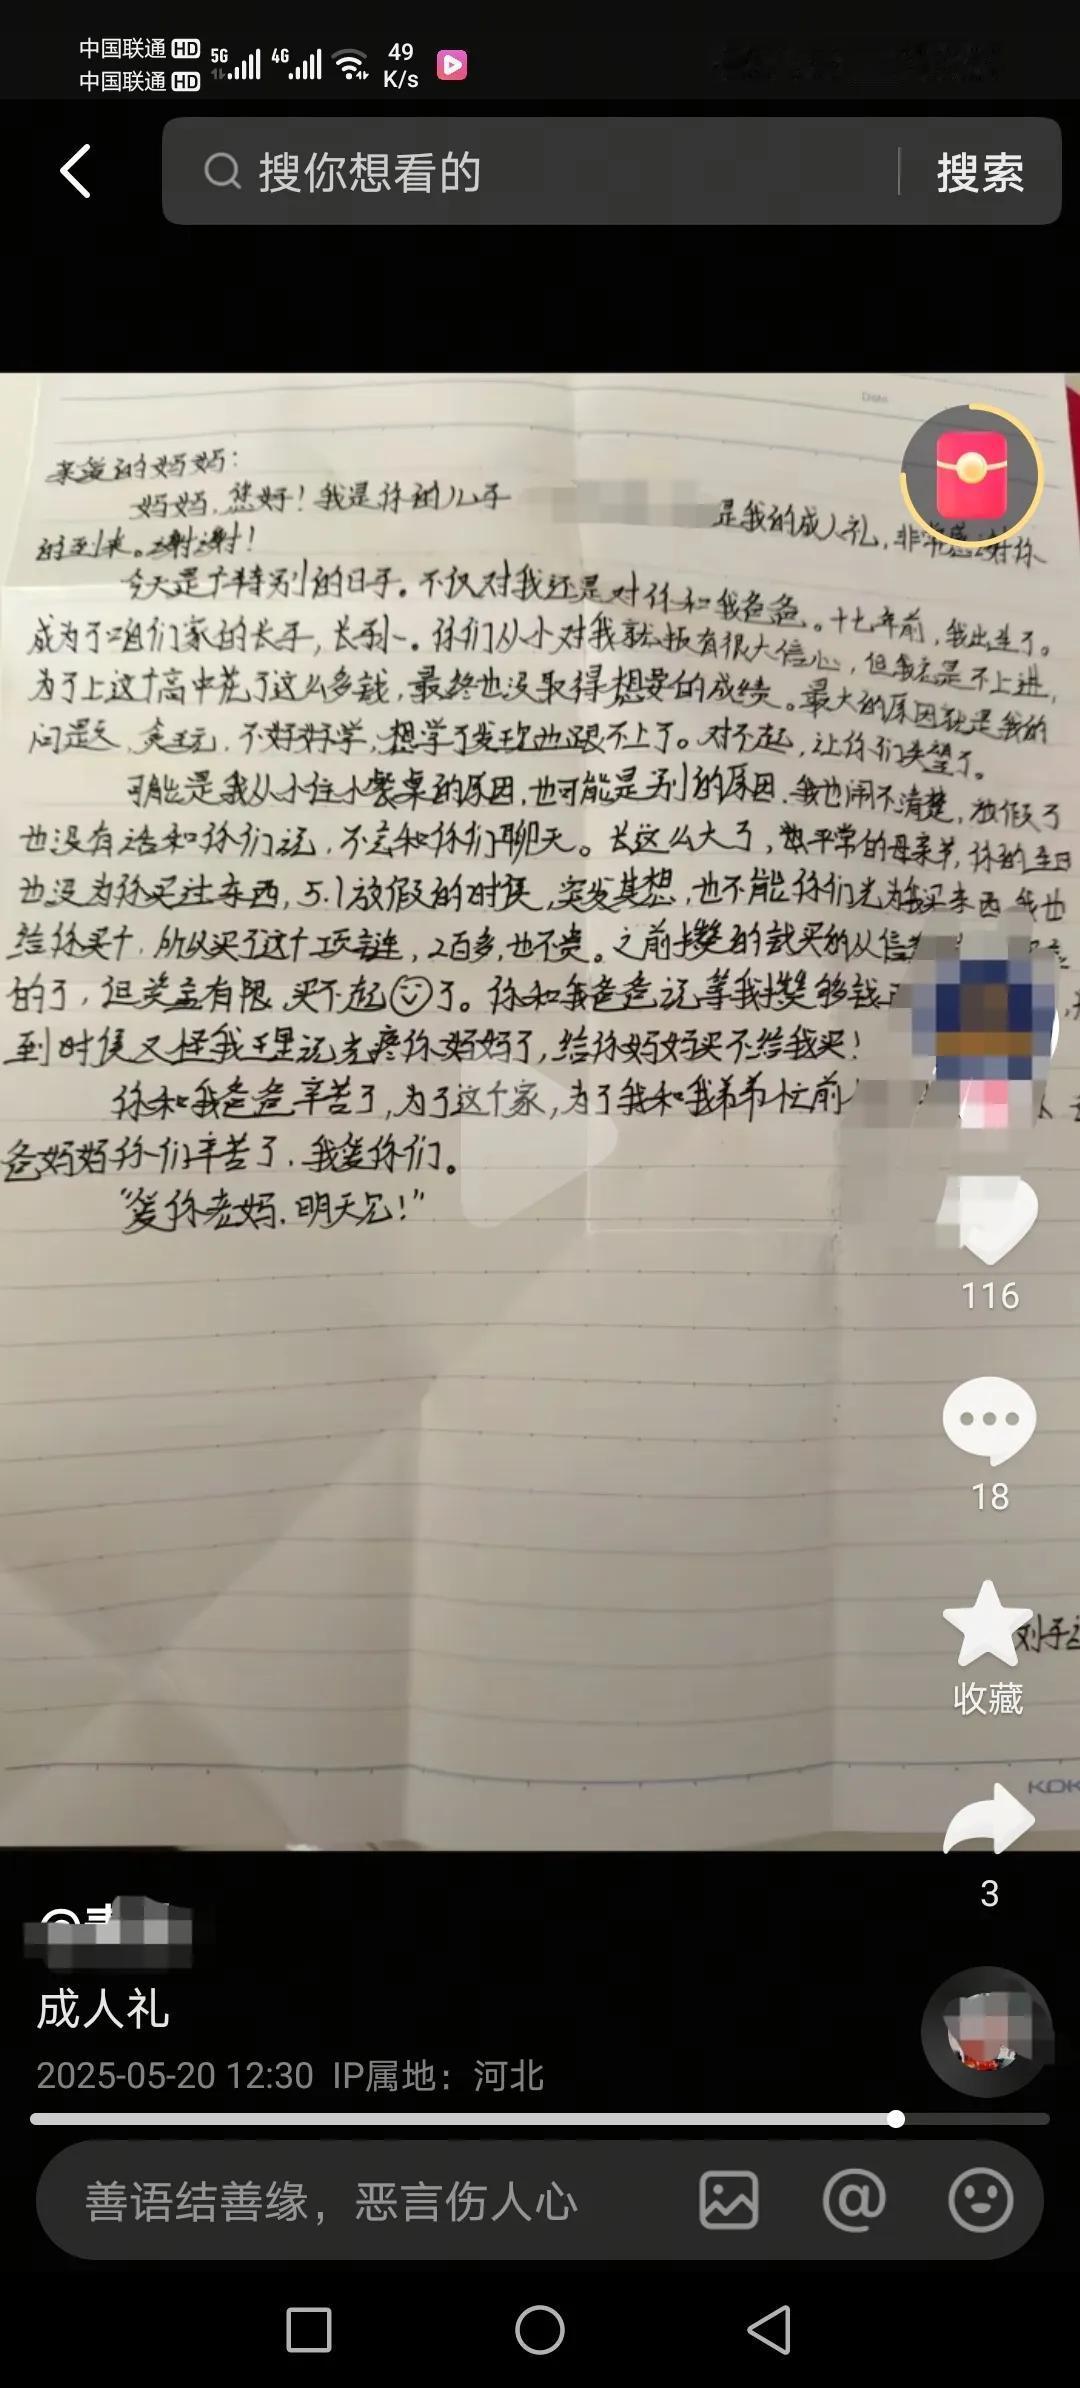 中国联通 HD 5G 4G 49 K/s
中国联通 HD
搜你想看的 搜索
Date
亲爱的妈妈：
妈妈，您好！我是你的儿子 是我的成人礼，非常感谢你
的到来。谢谢！
今天是个特别的日子。不仅对我还是对你和我爸爸。十七年前，我出生了。
成为了咱们家的长子，长孙。你们从小对我就抱有很大信心，但我总是不上进，
为了上这个高中花了这么多钱，最终也没取得想要的成绩。最大的原因就是我的
问题，贪玩，不好好学，想学了发现也跟不上了。对不起，让你们失望了。
可能是我从小住小餐桌的原因，也可能是别的原因，我也闹不清楚，放假了
也没有话和你们说，不会和你们聊天。长这么大了，平常的母亲节，你的生日
也没为你买过东西，5.1放假的时侯，突发其想，也不能你们光为我买东西 我也
给你买个，所以买了这个项链，2百多，也不贵。之前攒的钱买的
的了，但资金有限，买不起了。你和我爸爸说等我攒够钱
到时侯又怪我 说光疼你妈妈了，给你妈妈买不给我买！
你和我爸爸辛苦了，为了这个家，为了我和我弟弟忙前
爸妈妈你们辛苦了，我爱你们。
“爱你老妈，明天见！”
116
18
刘子
收藏
KOK
3
成人礼
2025-05-20 12:30 IP属地：河北
善语结善缘，恶言伤人心